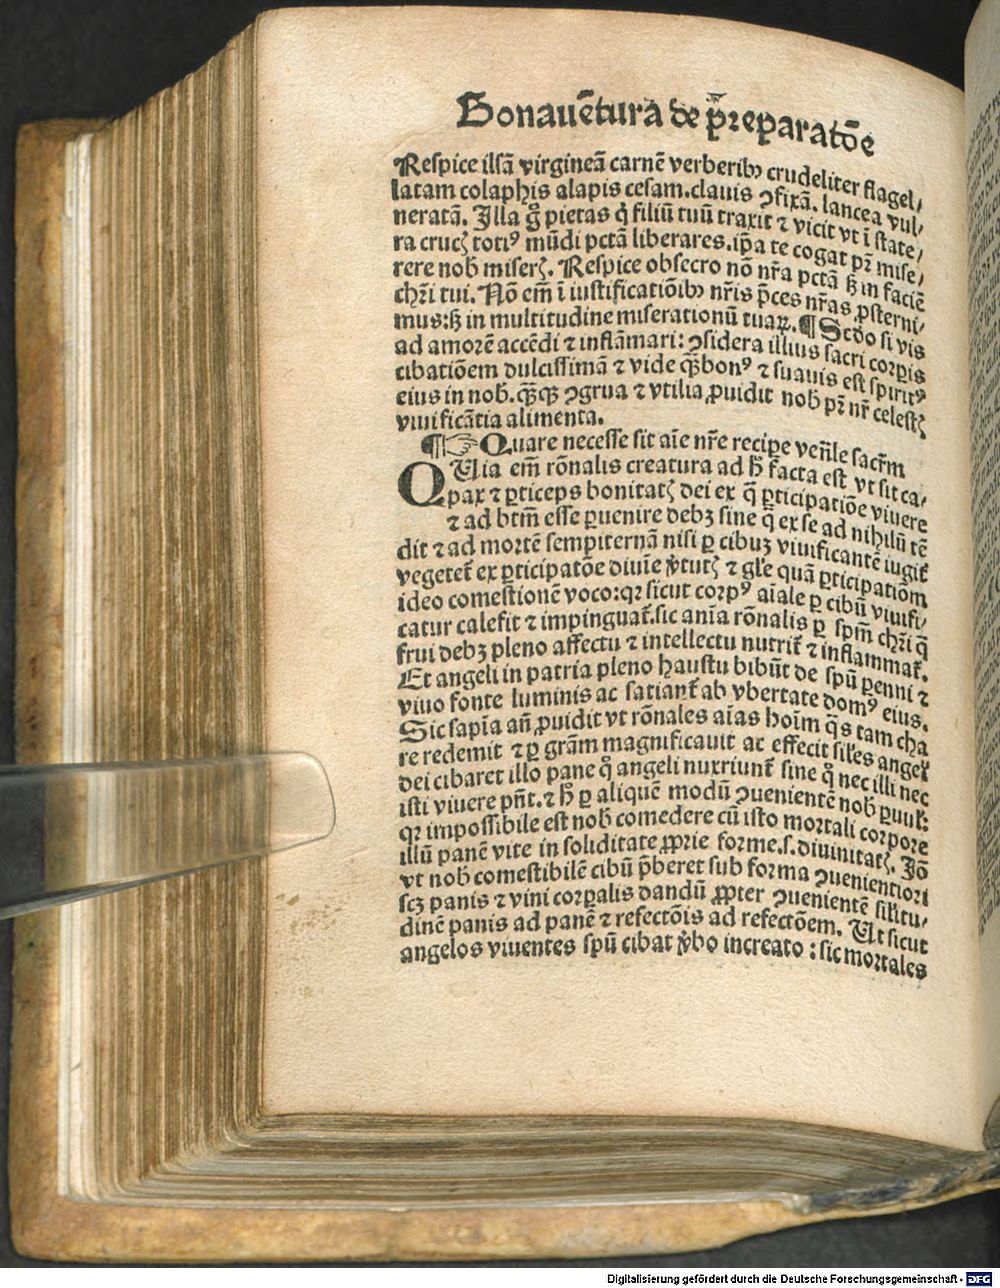 Bonauētura de p̄reparatōe
Respice illā virgineā carnē verberibꝰ crudeliter flagel/
latam colaphis alapis cesam.clauis ꝯfixā. lancea vul/
neratā. Illa g̊ pietas q̇ filiū tuū traxit ⁊ vicit vt ī state/
ra crucꝭ totiꝰ mūdi pctā liberares.ip̄a te cogat pr̄ mise/
rere nob̄ miserꝭ. Respice obsecro nō nr̄a pctā ꝭ in faciē
chr̄i tui. Nō em̄ ī iustificatiōibꝰ nr̄is p̄ces nr̄as ꝓsterni/
mus:ꝭ in multitudine miserationū tuaꝝ. ¶ Scdo si vis
ad amorē accēdi ⁊ inflāmari: ꝯsidera illius sacri corpis
cibatiōem dulcissimā ⁊ vide q̄ꝫbonꝰ ⁊ suauis est spiritꝰ
eius in nob̄. q̄ꝫꝗ ꝯgrua ⁊ vtilia ꝓuidit nob̄ pr̄ nr̄ celestꝭ
viuificātia alimenta.
¶☞ Quare necesse sit aīe nr̄e recipe ven̄le sacr̄m
QUia em̄ rōnalis creatura ad h̄ facta est vt sit ca/
pax ⁊ ꝑticeps bonitatꝭ dei ex q̄ ꝑticipatiōe viuere
⁊ ad btm̄ esse ꝑuenire debꝫ sine q̄ ex se ad nihilū tē
dit ⁊ ad mortē sempiternā nisi ꝑ cibuꝫ viuificantē iugit̄
vegetet̄ ex ꝑticipatōe diuīe v̄tutꝭ ⁊ gl̄e quā ꝑticipatiōm
ideo comestionē voco:qꝛ sicut corpꝰ aīale ꝑ cibū viuifi/
catur calefit ⁊ impinguat̄.sic anīa rōnalis ꝑ spm̄ chr̄i q̄
frui debꝫ pleno affectu ⁊ intellectu nutrit̄ ⁊ inflammat̄.
Et angeli in patria pleno haustu bibūt de spū ꝑenni ⁊
viuo fonte luminis ac satiant̄ ab vbertate domꝰ eius.
Sic sapīa an̄ ꝓuidit vt rōnales aīas hoīm q̄s tam cha
re redemit ⁊ ꝑ grām magnificauit ac effecit sil̄es angeꝝ
dei cibaret illo pane q̊ angeli nuxriunt̄ sine q̊ nec illi nec
isti viuere pn̄t.⁊ h̄ ꝑ aliquē modū ꝯuenientē nob̄ ꝑuul̄:
qꝛ impossibile est nob̄ comedere cū isto mortali corpore
illū panē vite in soliditate ꝓprie forme.s.diuinitatꝭ. Iō
vt nob̄ comestibilē cibū p̄beret sub forma ꝯuenientiori
scꝫ panis ⁊ vini corpalis dandū ꝓpter ꝯuenientē sil̄itu/
dinē panis ad panē ⁊ refectōis ad refectōem. Ut sicut
angelos viuentes spū cibat v̄bo increato : sic mortales
Digitalisierung gefördert durch die Deutsche Forschungsgemeinschaft - DFG